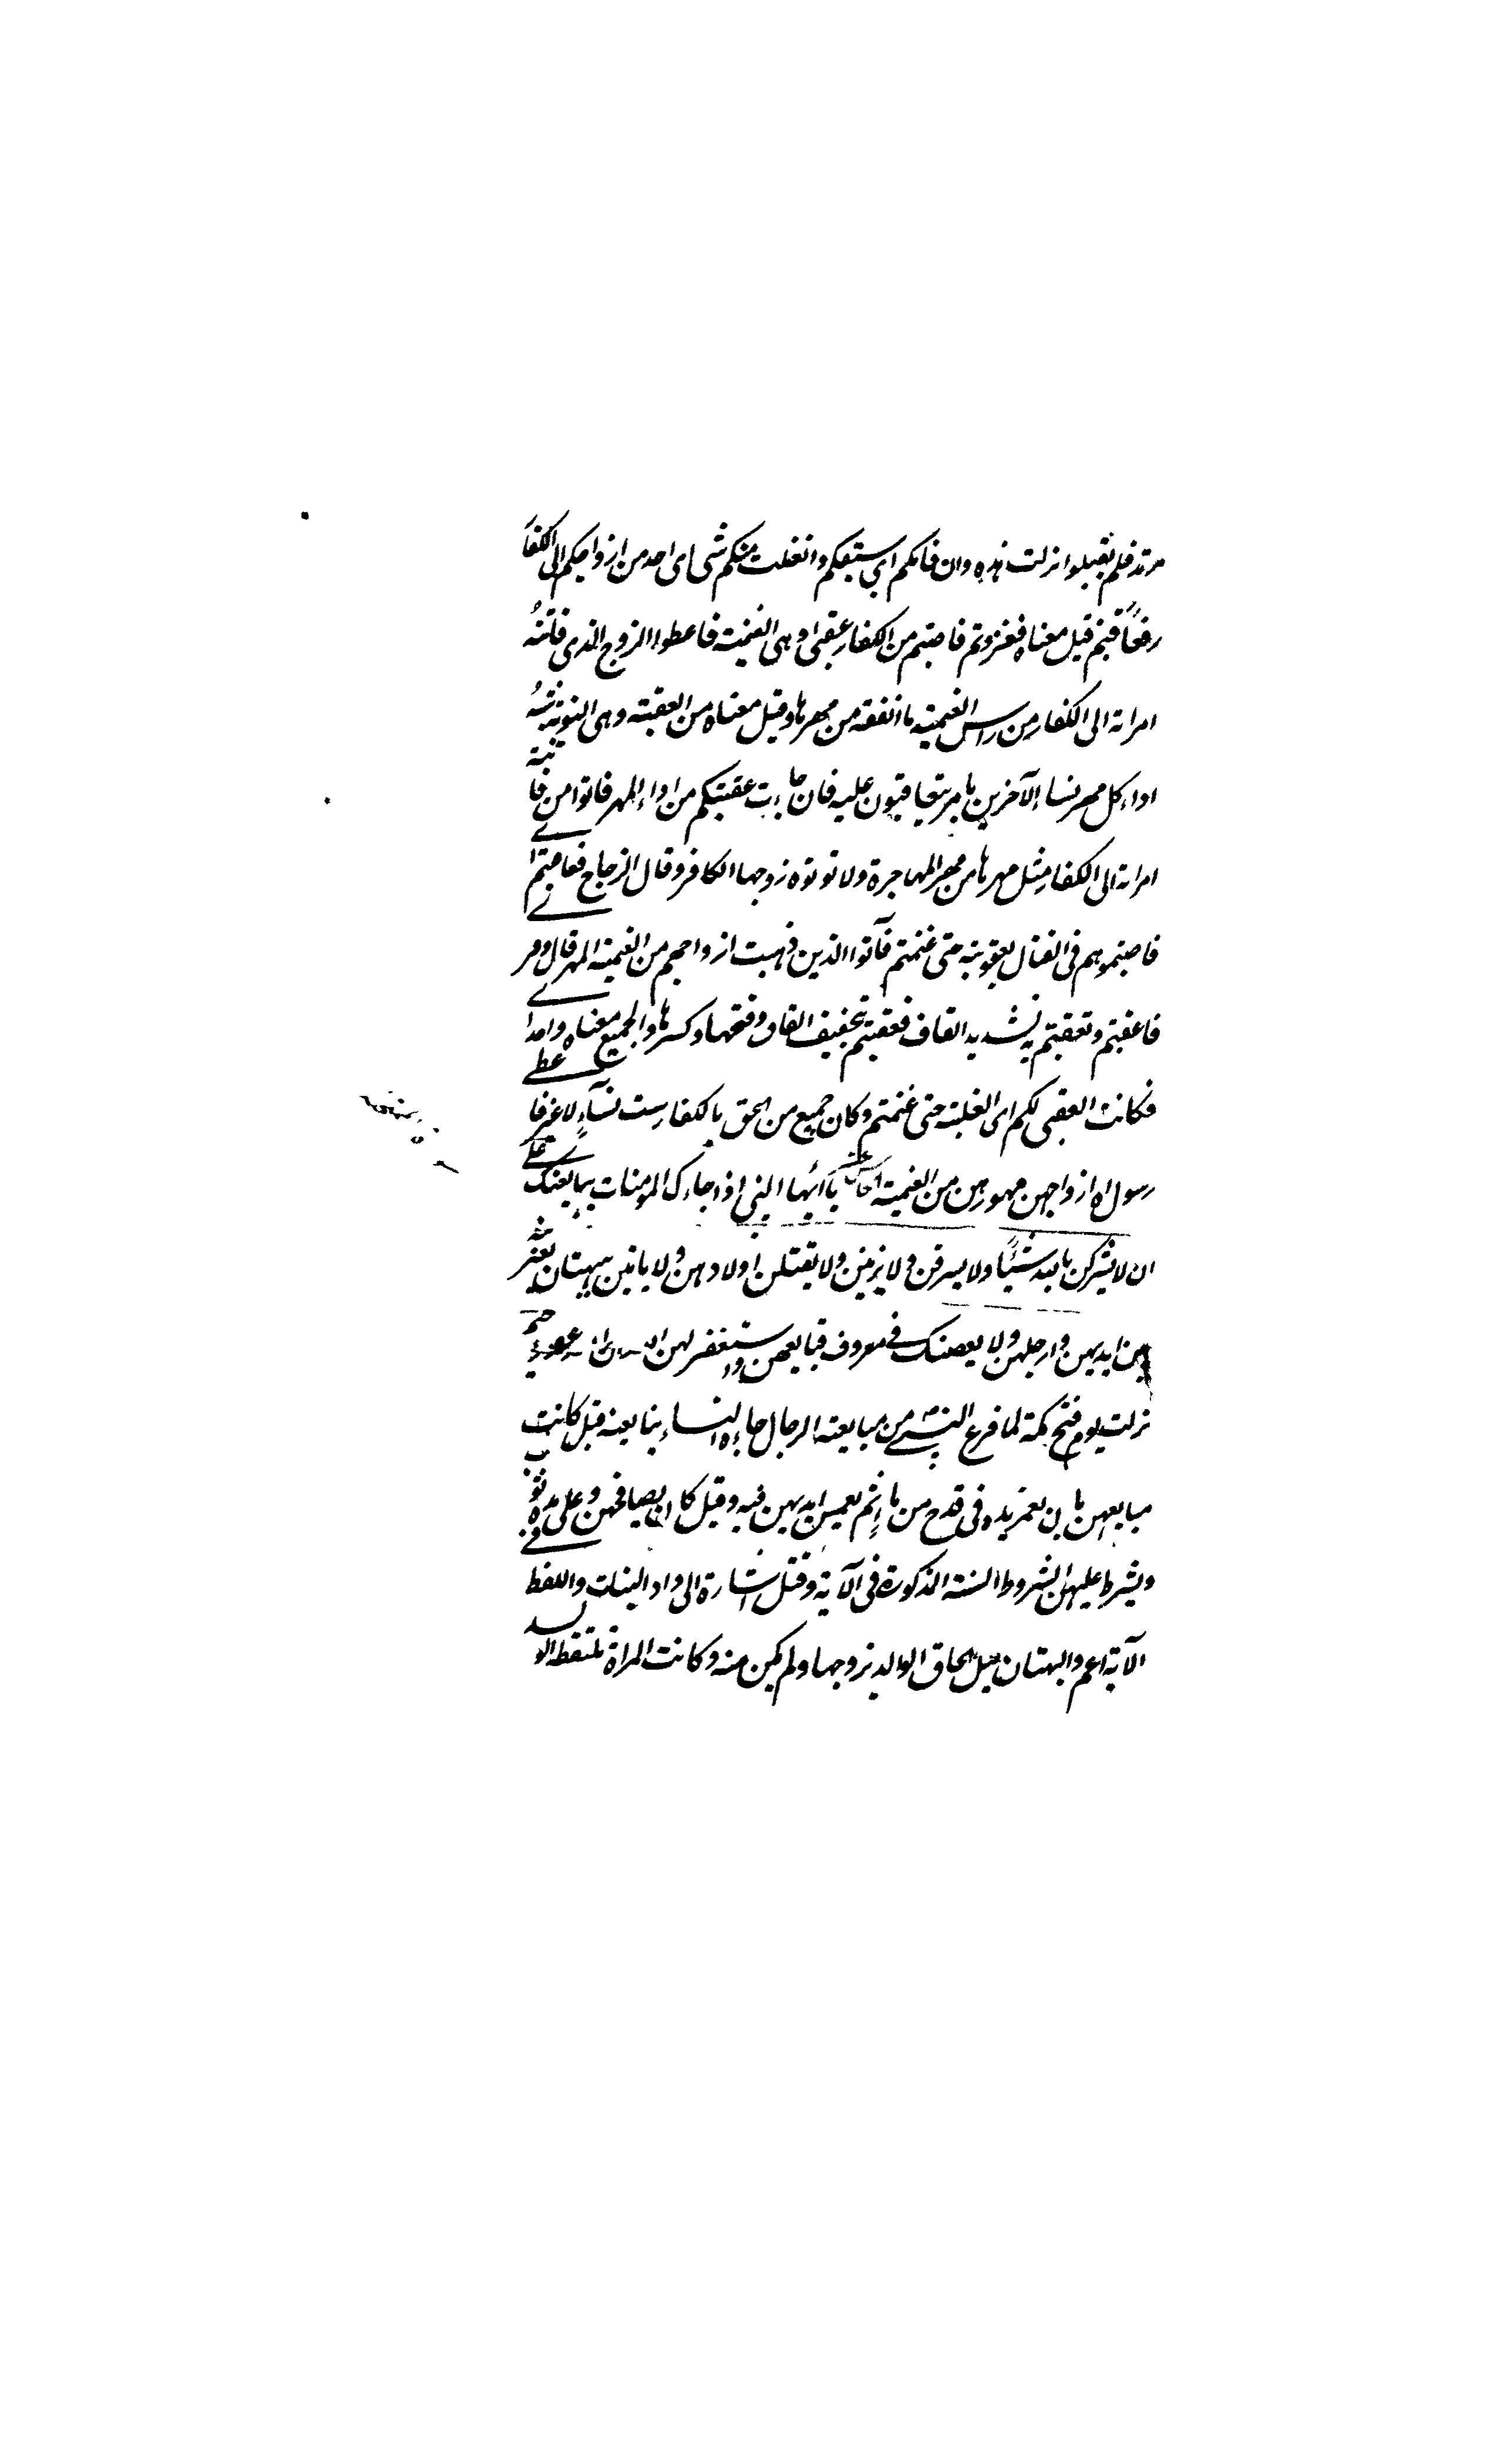 مرتد فلم یقبلوا نزلت هذه وان فاتکم ای سبقکم وانفلت منکم شی ای احد من ازواجکم الی الکفا
فعاقبتم قیل معناه فغزوتم فاصبتم من الکفار عقبی وهی الغنیمة فاعطوا الزوج الذی فاتته
امراته الی الکفار من راس الغنیمة ما انفقه من مهرها وقیل معناه من العقبة وهی النوبة
اداء کل مهر نساء الآخرین بامر یتعاقبون علیه فان جاءت عقبتکم من اداء المهر فاتوا من فا
امراته الی الکفار مثل مهرها من مهر المهاجرة ولا توتوه زوجها الکافر وقال الزجاج فعاقبتم
فاصبتموهم فی القتال بعقوبة حتی غنمتم فآتوا الذین ذهبت ازواجهم من الغنیمة المهر قال وقر
فاعقبتم وتعقبتم بتشدید القاف فعقبتم بتخفیف القاف وفتحها وکسرها والجمیع معناه واحدا
فکانت العقبی لکم ای الغلبة حتی غنمتم وکان جمیع من لحق بالکفار ست نساء
رسول الله ازواجهن مهورهن من الغنیمة یا ایها النبی اذا جاءک المومنات یبایعنک
ان لا یشرکن بالله شیئا ولا یسرقن ولا یزنین ولا یقتلن اولادهن ولا یاتین ببهتان یفتر
بین ایدیهن وارجلهن ولا یعصینک فی معروف فبایعهن واستغفر لهن الله ان الله غفور رحیم
نزلت یوم فتح مکة لما فرغ النبی من مبایعة الرجال جاءه النساء یبایعنه قیل کانت
مبایعهن بان یغمر یده فی قدح من ماء ثم یغمسن ایدیهن فیه وقیل کان یصافحهن وعلی یده ثوب
ویشرط علیهن الشروط الستة المذکورة فی الآیة وقتل اشارة الی واد البنات واللفظ
الآیة اعم والبهتان قیل الحاق الوالد بزوجها ولم یکن منه وکانت المراة تلتقط الولد